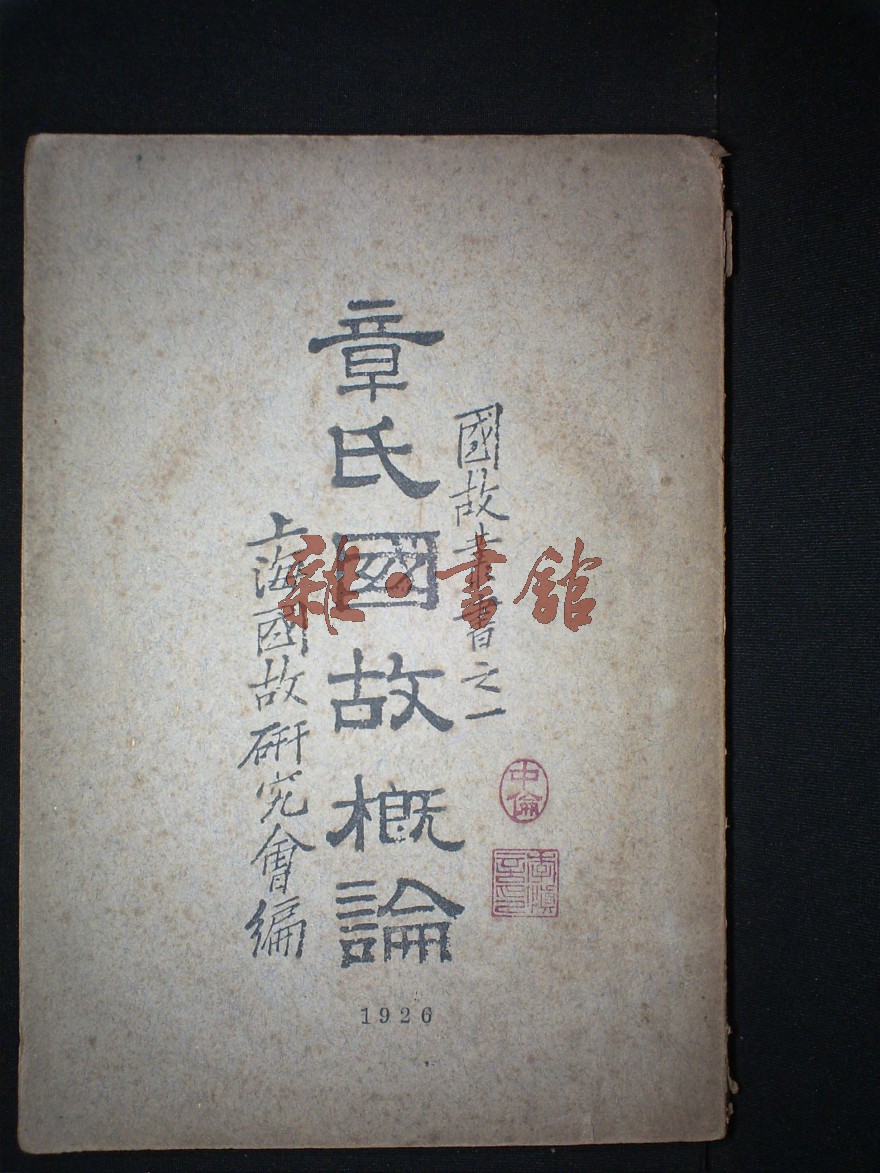 國故叢書之一
章氏國故概論
上海國故研究會編
1926
中倫
雜·書館